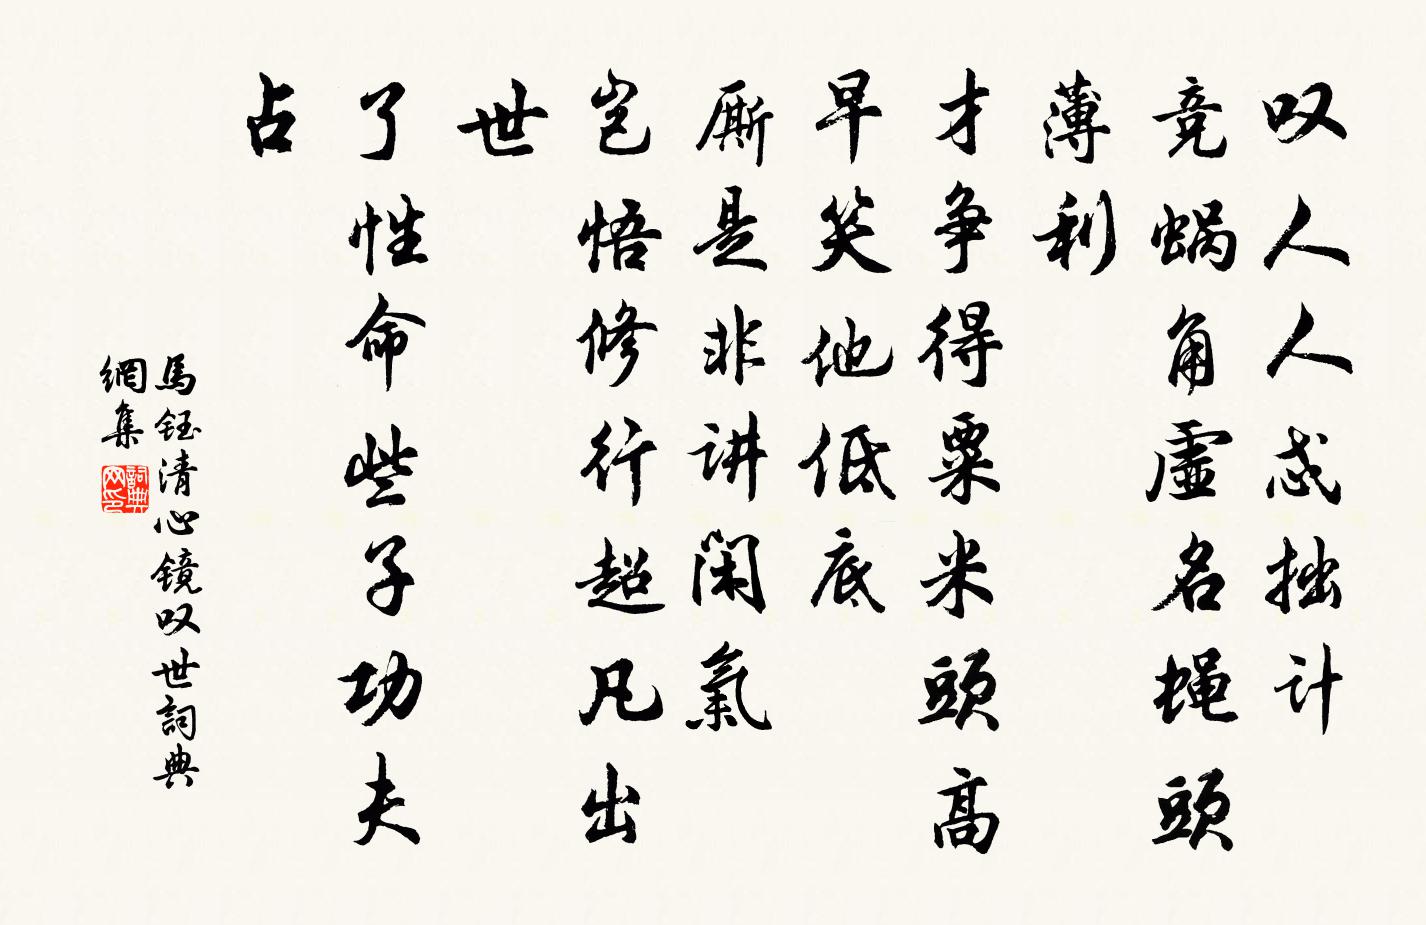 叹人人忒拙计
竞蜗角虚名蝇頭
薄利
才争得粟米頭高
早笑他低底
厮是非讲闲氣
岂悟修行超凡出
世
了性命些子功夫
占
馬鈺清心镜叹世詞典
網集
詞典網印